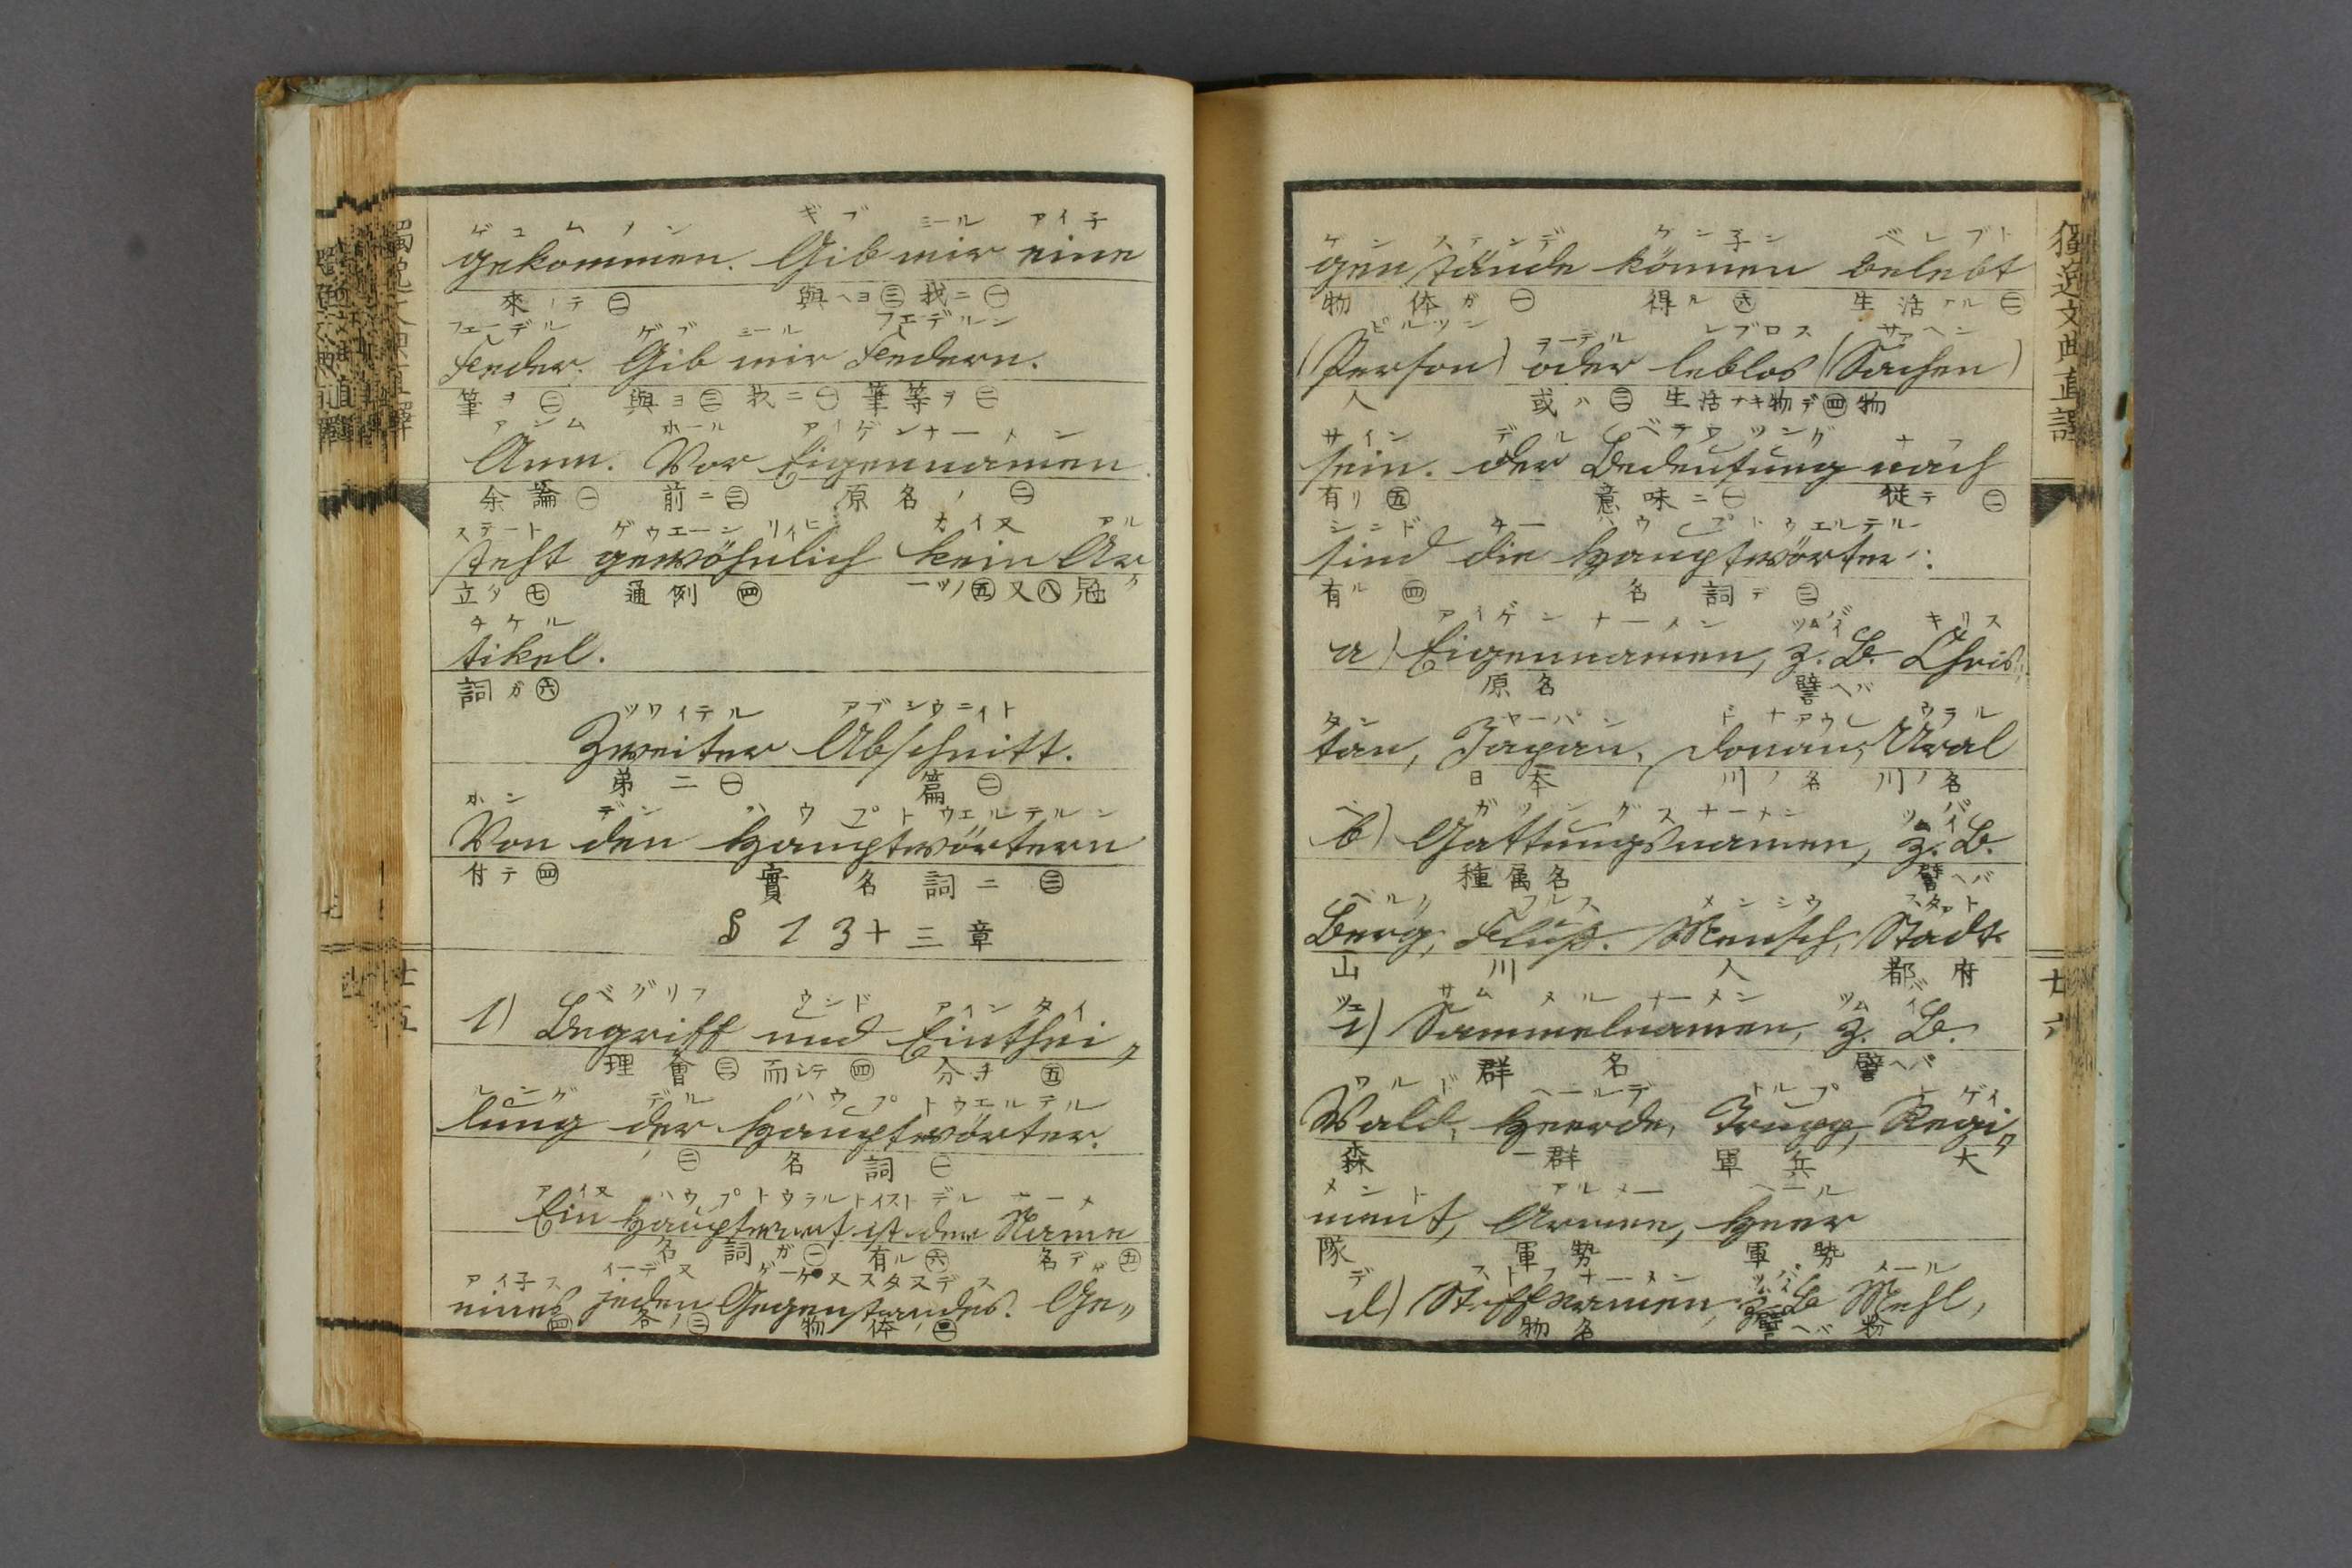 ゲコムメン ギブ ミール アイ子
gekommen. Gib mir eine
來リテ㊁ 與ヘヨ㊂ 我ニ㊀
フェーデル ゲブ ミール フェデルン
Feder. Gib mir Federn.
筆ヲ㊁ 與ヨ㊂ 我ニ㊀ 筆等ヲ㊁
アンム ホール アイゲンナーメン
Anm. Vor Eigennamen
余論㊀ 前ニ㊂ 原名ノ㊁
ステート ゲウエーンリイヒ カイヌ アル
steht gewöhnlich kein Ar
立ツ㊆ 通例㊃ 一ツノ㊄又㊇ 冠
チケル
tikel.
詞ガ㊅
ツワイテル アブシウニイト
Zweiter Abschnitt.
弟二㊀ 篇㊁
ホン デン ハウプトウエルテルン
Von den Hauptwörtern
付テ㊃ 實名詞ニ㊂
§ 13 十三章
ベグリフ ウンド アインタイ
1) Begriff und Einthei„
理會㊂ 而シテ㊃ 分チ㊄
ルング デル ハウプトウエルテル
lung der Hauptwörter.
㊁ 名詞㊀
アイヌ ハウプトウラルト イスト デル ナーメ
Ein Hauptwort ist der Name
名詞ガ㊀ 有ル㊅ 名デ㊄
アイ子ス イーデヌ ゲーゲヌスタヌデス ゲ
eines jeden Gegenstandes. Ge„
㊃ 各ノ㊂ 物体ノ㊁
獨逸文典直譯
ゲンステンデ ケン子ン ベレブト
genstände können belebt
物体ガ㊀ 得ル㊅ 生活アル㊁
ピルソン ヲーデル レブロス サアヘン
(Person) oder leblos (Sachen)
人 或ハ㊂ 生活ナキ物デ㊃ 物
サイン デル ベデウツング ナフ
sein. Der Bedeutung nach
有リ㊄ 意味ニ㊀ 從テ㊁
シンド チー ハウプトウエルテル
sind die Hauptwörter:
有ル㊃ 名詞デ㊂
アイゲンナーメン ツムバイ キリス
a) Eigennamen, z. B. Chris„
原名 譬ヘバ
タン ヤーパン ドナアウ ウラル
tan, Japan, Donau, Ural
日本 川ノ名 川ノ名
ベ ガツングスナーメン ツムバイ
b) Gattungsnamen, z. B.
種属名 譬ヘバ
ベルク フルス メンシウ スタアト
Berg, Fluß. Mensch, Stadt
山 川 人 都府
ツエ サムメルナーメン ツムバイ
c) Sammelnamen, z. B.
群名 譬ヘバ
ワルド ヘールデ トルプ レゲイ
Wald, Heerde, Trupp, Regi„
森 一群 軍兵 大
メント アルメー ヘール
ment, Armee, Heer
隊 軍勢 軍勢
デ ストフナーメン ツムバイ メール
d) Stoffnamen, z. B Mehl,
物名 譬ヘバ 粉
廿六